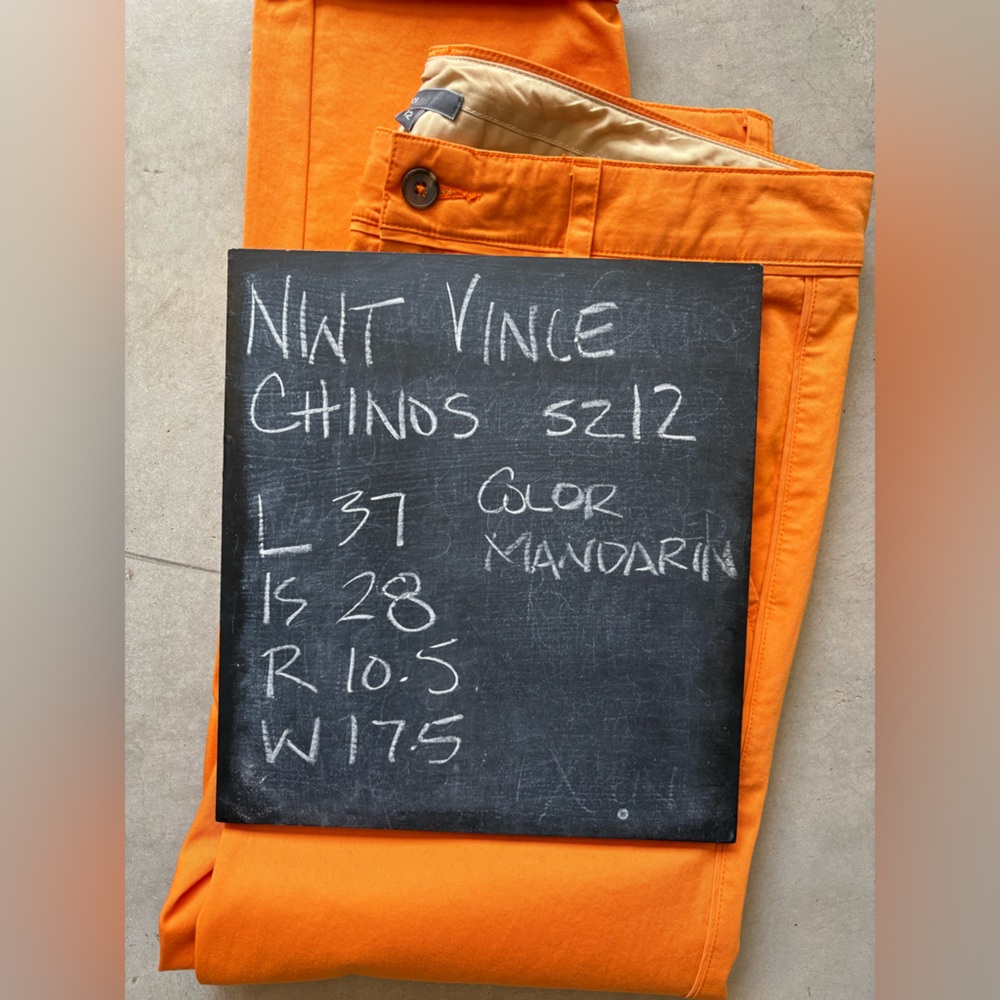 NWT VINCE
CHINOS SZ12
COLOR
MANDARIN
L 37
IS 28
R 10.5
W 17.5